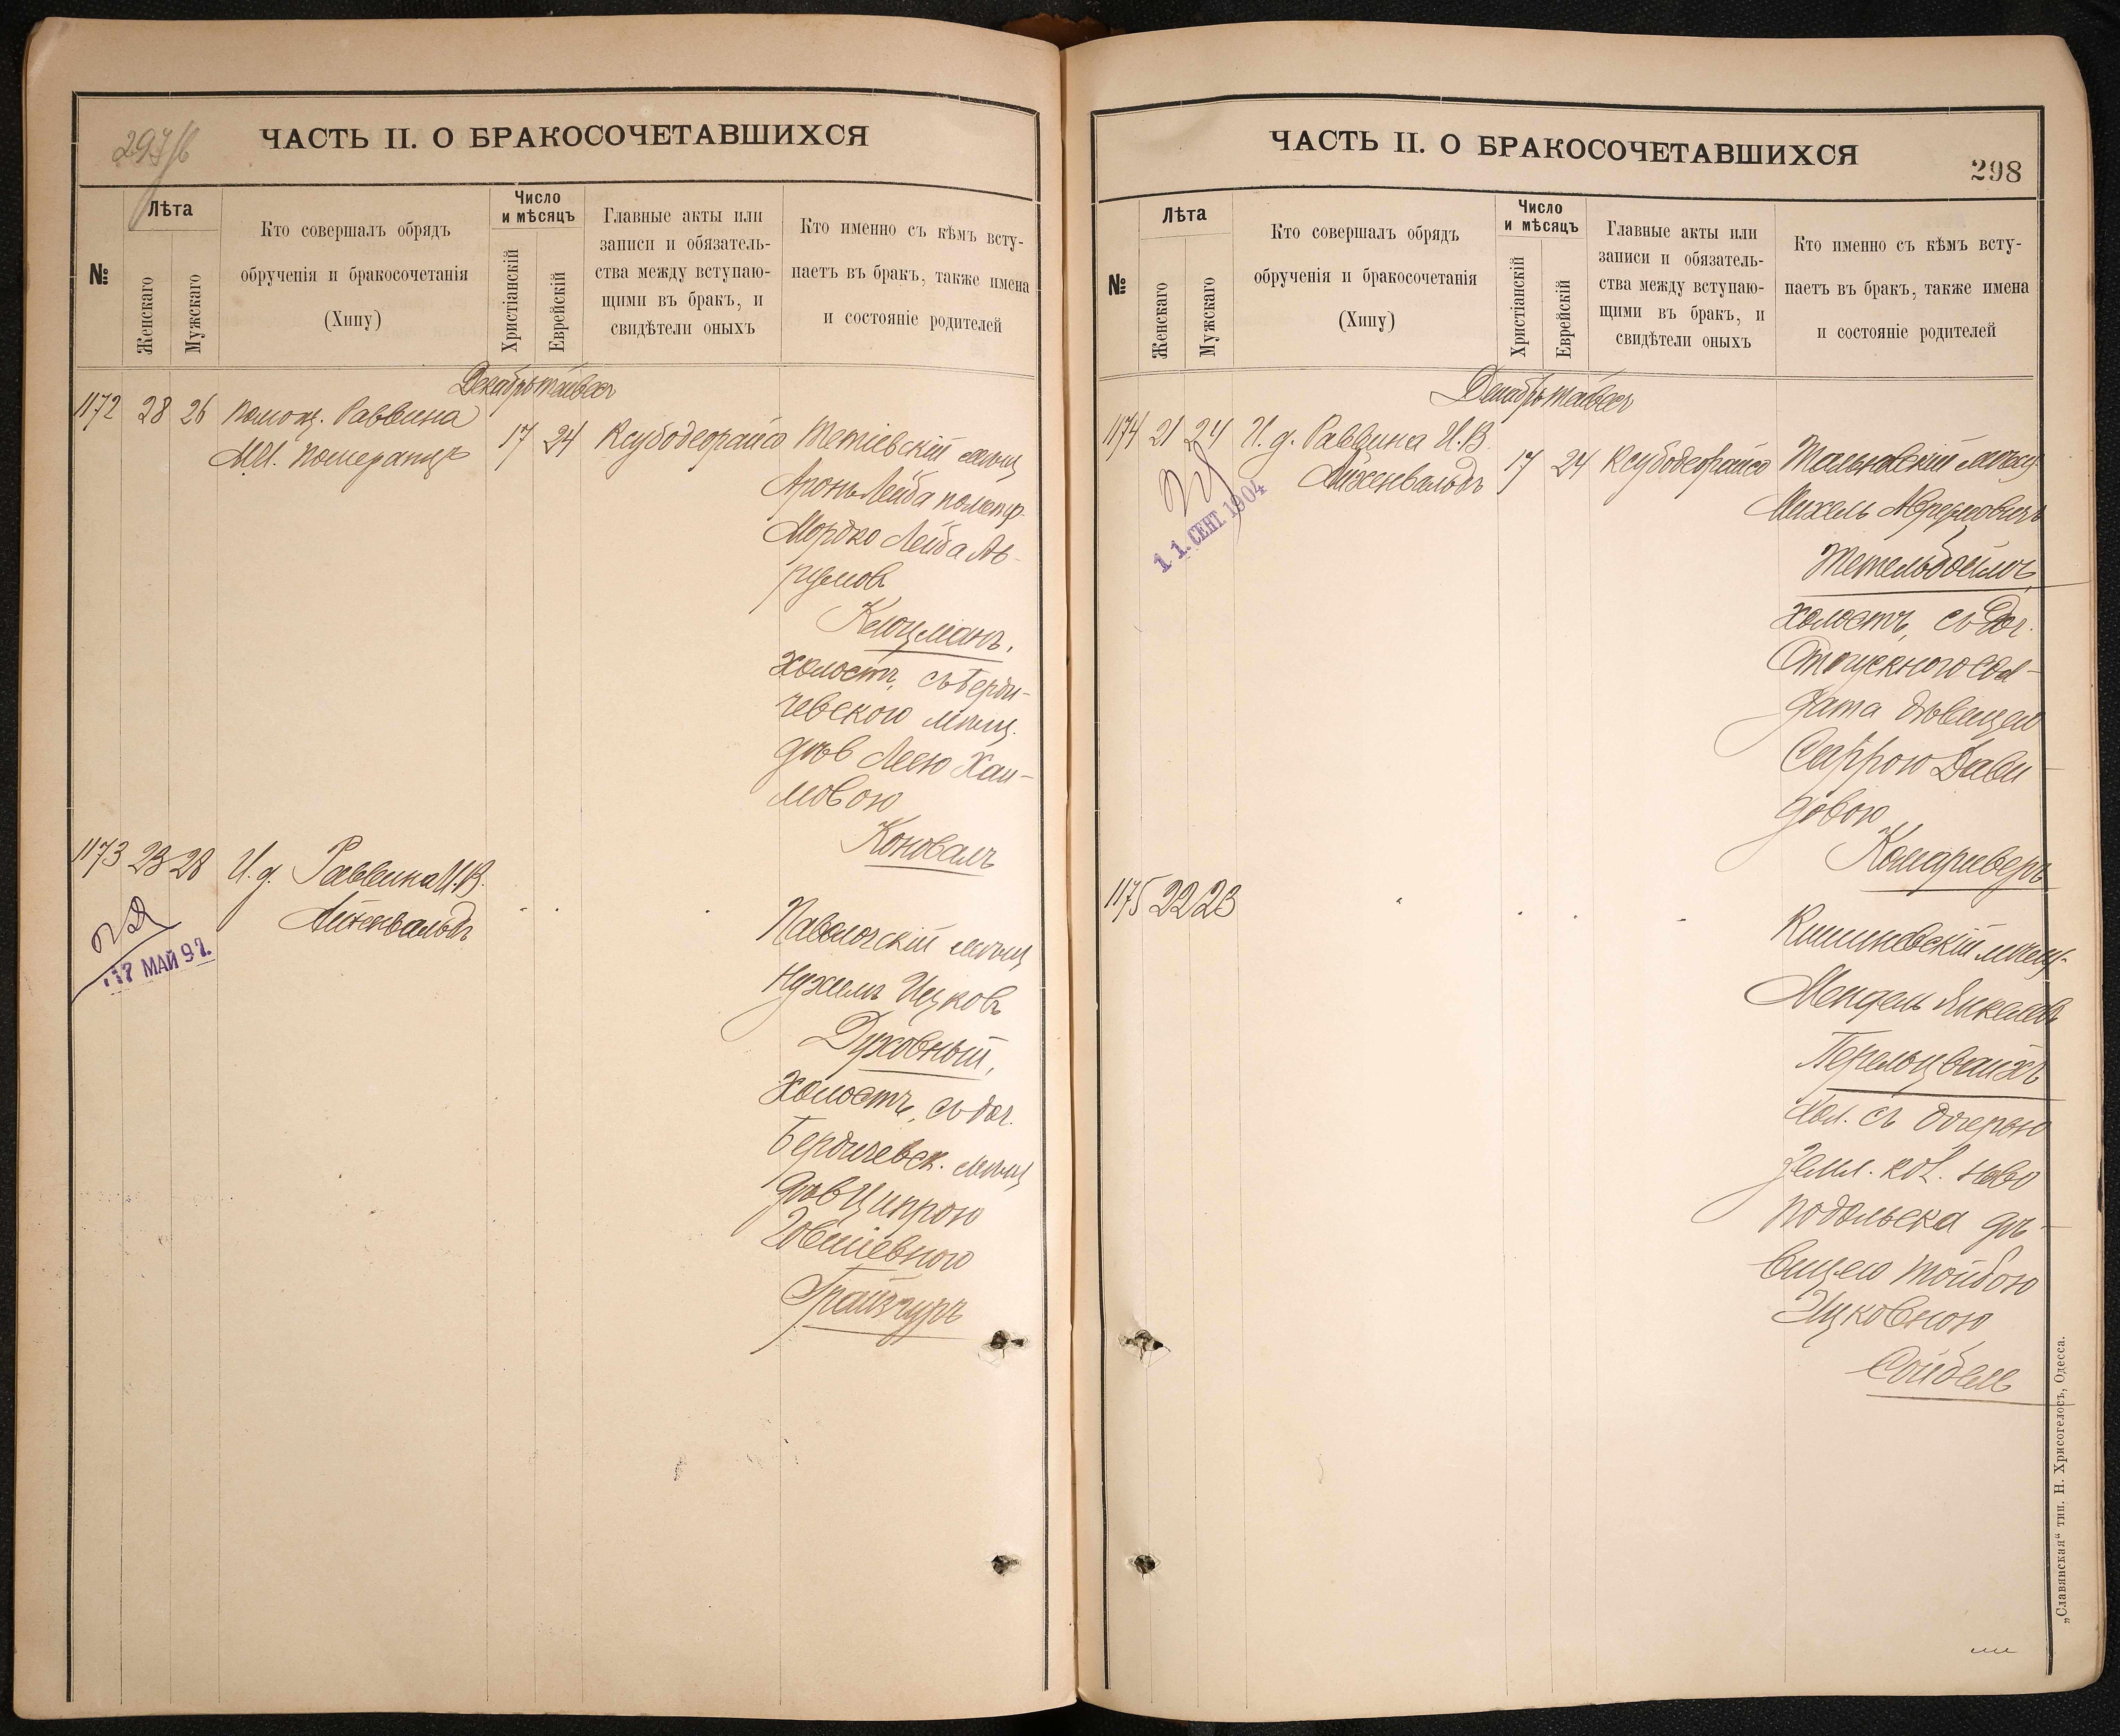 297/б
ЧАСТЬ II. О БРАКОСОЧЕТАВШИХСЯ
№
Лѣта
Женскаго
Мужскаго
Кто совершалъ обрядъ
обрученія и бракосочетанія
(Хипу)
Число
и мѣсяцъ
Христіанскій
Еврейскій
Главные акты или
записи и обязатель-
ства между вступаю-
щими въ бракъ, и
свидѣтели оныхъ
Кто именно съ кѣмъ всту-
паетъ въ бракъ, также имена
и состояніе родителей
Декабрь Тайвес
1172 28 26 Помощ. Раввина
М.И. Померанцъ 17 24 Ксубодеорайсо Тетіевскій мѣщ
Аронъ Лейба
Мордко Лейба Ав-
румов
Клоцманъ,
холостъ, съ Берди-
чевскою мѣщ.
дѣв Леею Хаи-
мовою
Коновалъ
1173 23 28 И. д. Раввина И.В.
Айзенвальдъ
17 МАЙ 97.
Паволочскій мѣщ
Нухимъ Ицковъ
Духовный,
холостъ, съ доч.
Бердичевск. мѣщ
дѣв Ципрою
Іовсіевною
ЧАСТЬ II. О БРАКОСОЧЕТАВШИХСЯ
298
№
Лѣта
Женскаго
Мужскаго
Кто совершалъ обрядъ
обрученія и бракосочетанія
(Хипу)
Число
и мѣсяцъ
Христіанскій
Еврейскій
Главные акты или
записи и обязатель-
ства между вступаю-
щими въ бракъ, и
свидѣтели оныхъ
Кто именно съ кѣмъ всту-
паетъ въ бракъ, также имена
и состояніе родителей
Декабрь Тайвес
1174 21 24 И. д. Раввина И.В.
Айзенвальдъ 17 24 Ксубодеорайсо Тальновскій мѣщ
11. СЕНТ. 1904
Михель Аврумовичъ
Тетельбоймъ,
холостъ, съ Доч.
Отпускного сол-
дата дѣвицею
Саррою Дави
довою
Комдриверъ
1175 22 23
Кишиневскій мѣщ-
Мендель Янкелев
Перельцвайхъ
хол. съ дочерью
Земл. кол. Ново
подольска дѣ-
вицею Тойбою
Эцковною
Сойбель
„Славянская“ тип. Н. Хрисогелосъ, Одесса.